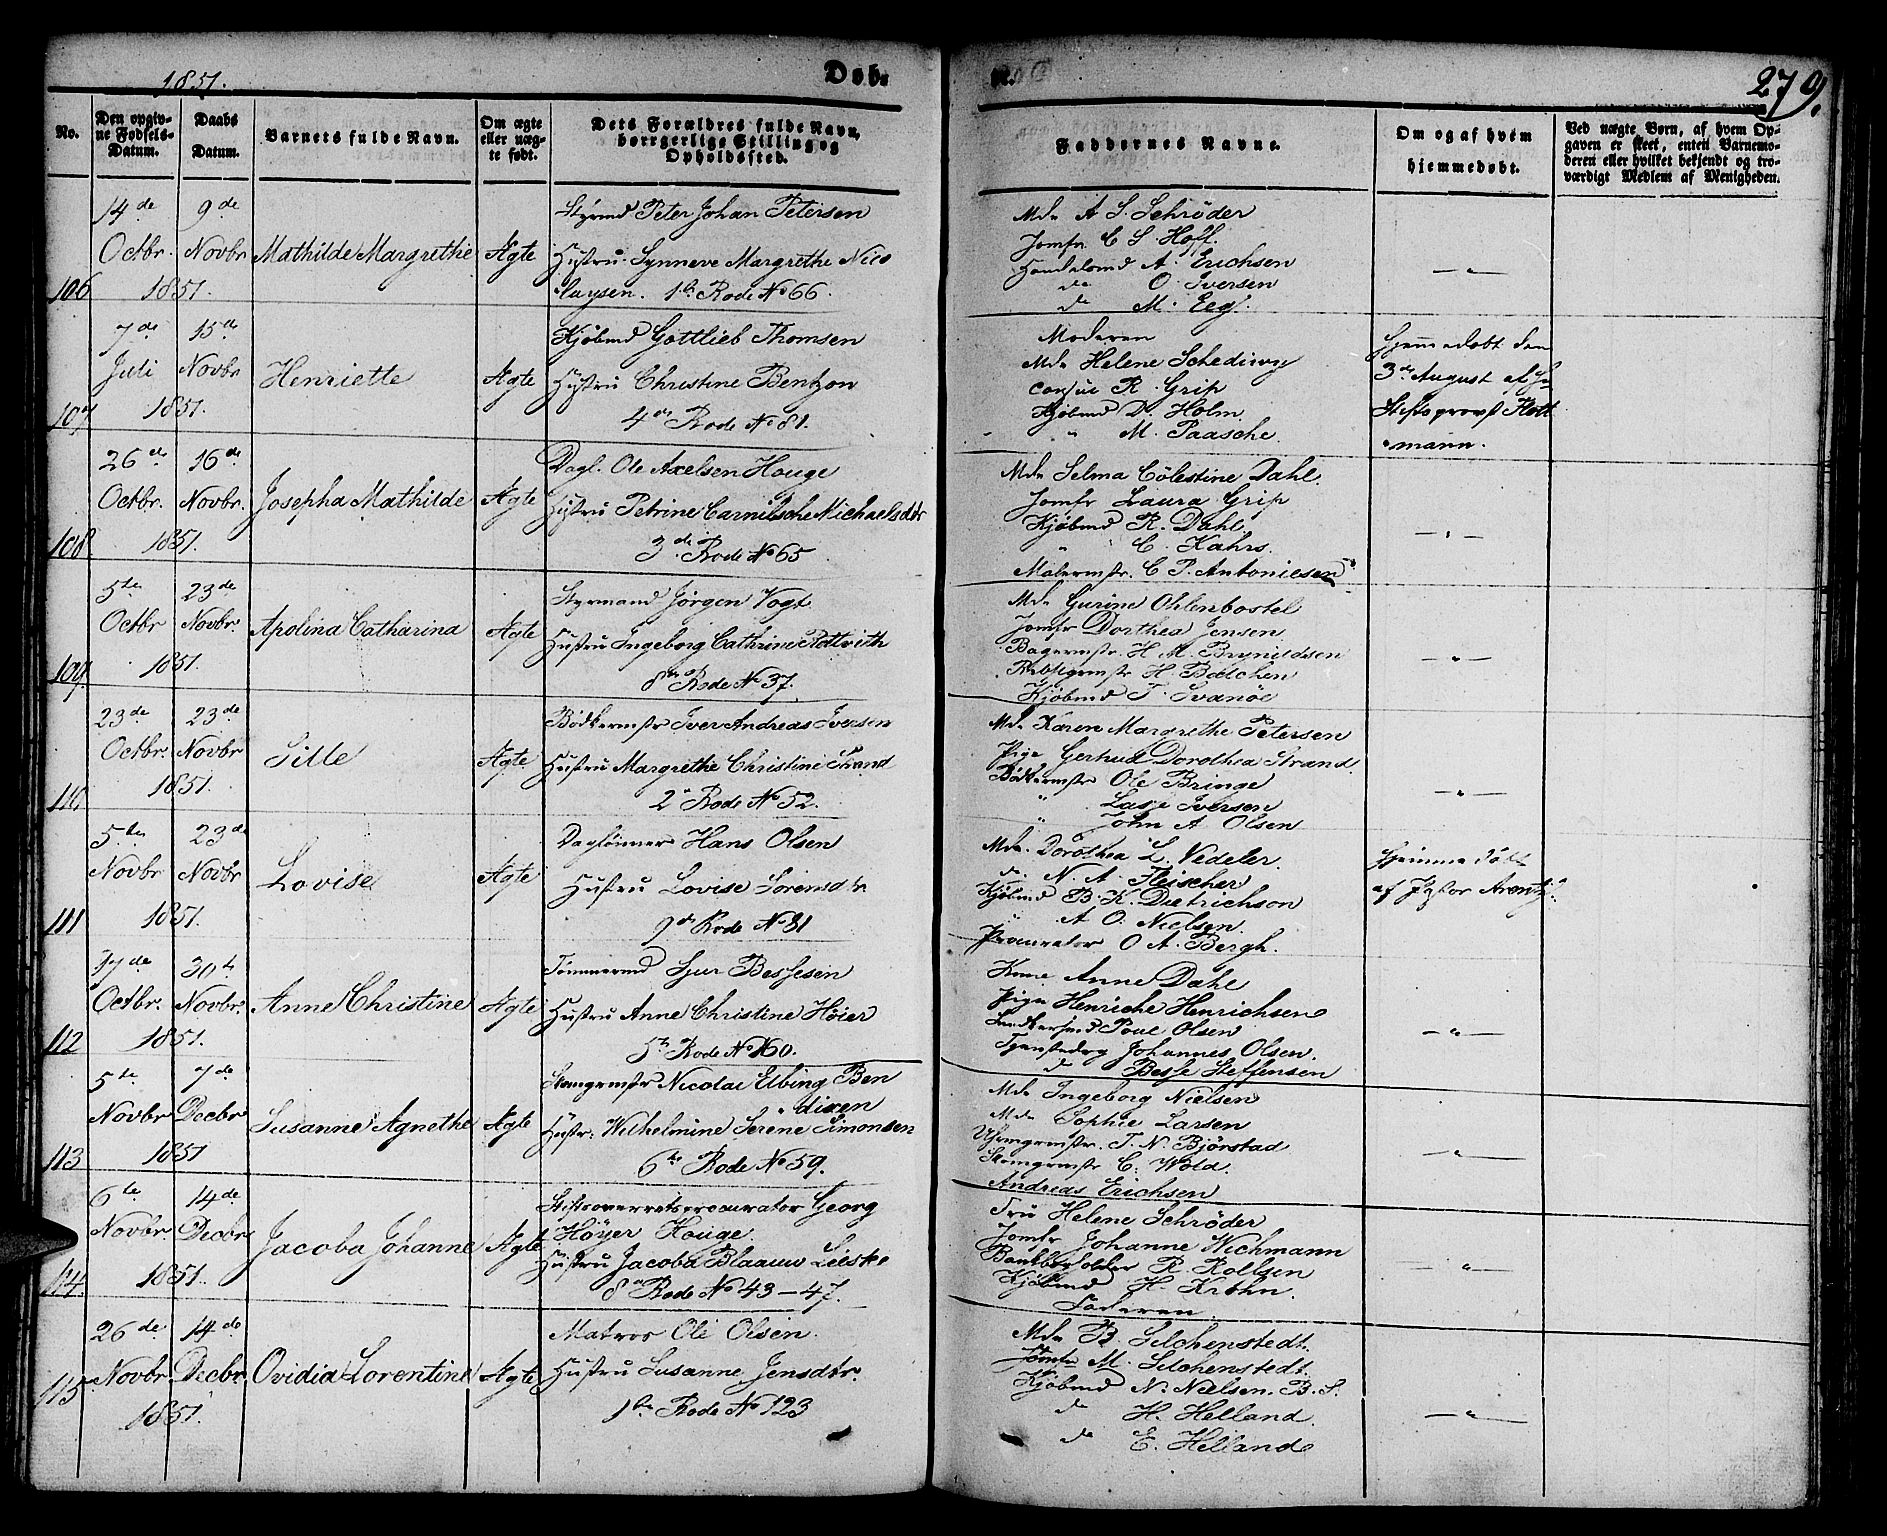 1851.
Døb-
te.
279.
No.
Den opgiv-
ne Fødsels-
Datum.
Daabs
Datum.
Barnets fulde Navn.
Om ægte
eller uæg-
te født.
Dets Forældres fulde Navn,
borrgerlige Stilling og
Opholdsted.
Faddernes Navne.
Om og af hvem
hjemmedøbt.
Ved uægte Børn, af hvem Op-
gaven er skeet, enten Barnemo-
deren eller hvilket bekjendt og tro-
værdigt Medlem af Menigheden.
106
14de Octbr. 9de Novbr
1851.
Mathilde Margrethe
Ægte
Styrmd Peter Johan Petersen
Hustru Synneve Margrethe Nico
laysen. 1te Rode No 66.
Mde A S. Schrøder
Jomfr C S Hoff.
Handelsmd A. Erichsen
do O. Iversen
do M. Eeg.
107
7de Juli 15de Novbr
1851.
Henriette
Ægte
Kjøbmd Gottlieb Thomsen
Hustru Christine Bentzon
4de Rode No 81.
Moderen
Mde Helene Schediwy
Consul R. Grip
Kjøbmd D. Holm
" M. Paasche.
Hjemmedøbt den
3de August af Hr
Stiftsprovst Kott
mann.
108
26de Octbr. 16de Novbr.
1851.
Josepha Mathilde
Ægte
Dagl. Ole Axelsen Houge
Hustru Petrine Michaelsdtr
3die Rode No 65
Mde Selma Cölestine Dahl.
Jomfr Laura Grip
Kjøbmd R. Dahl.
" C. Kahrs.
Malermstr. C P. Antoniesen
109.
5te Octbr 23de Novbr.
1851.
Apolina Catharina
Ægte
Styrmand Jørgen Vogt
Hustru Ingeborg Cathrine
8de Rode No 37.
Mde Gurine Ohlenbostel
Jomfr Dorthea Jensen
Bagermstr. H M. Brynildsen
H. Bøtchen
Kjøbmd T. Svanøe
110
23de Octbr. 23de Novbr
1851.
Sille
Ægte
Bødkermstr Iver Andreas Iversen
Hustru Margrethe Christine Strand
2den Rode No 52.
Mde Karen Margrethe Petersen
Pige Gertrud Dorothea Strand.
Bødkermstr Ole Bringe
" Lasse Iversen
" John A. Olsen
111
5te Novbr 23de Novbr
1851.
Lovise
Ægte
Dagløinner Hans Olsen
Hustru Lovise Sørensdtr
9de Rode No 81
Mde Dorothea L. Vedeler.
do N. A. Fleischer
Kjøbmd B. K. Dietrichson
" A O. Nielsen.
Procurator O A. Bergh.
Hjemmedøbt
af Pastor Arentz.
112
17de Octbr. 30te Novbr.
1851.
Anne Christine
Ægte
Tømmermd Sjur Bessesen
Hustru Anne Christine Høier
5te Rode No 160.
Kone Anne Dahl
Pige Henriche Henrichsen
Poul Olsen
Johannes Olsen.
do Besse Steffensen
113
5te Novbr 7de Decbr
1851
Susanne Agnethe
Ægte
Skomgrmstr Nicolai Elbing Ben
dixen
Hustr: Wilhelmine Serene Simonsen
6te Rode No 59.
Mde Ingeborg Nielsen
Mde Sophie Larsen
Uhrmgrmstr. T. N. Bjørstad
Skomgrmstr C. Wold.
Andreas Erichsen
114.
6te Novbr 14de Decbr
1851.
Jacoba Johanne
Ægte
Stiftsoverretsprocurator Georg
Höyer Houge.
Hustru Jacoba Blaauw Leiske
8de Rode No 43-47.
Fru Helene Schrøder
Jomfr Johanne Wichmann
Bankbogholder R. Rollsen
Kjøbmd H. Krohn.
Faderen
115
26de Novbr. 14de Decbr.
1851.
Ovidia Lorentine
Ægte
Matros Ole Olsen.
Hustru Susanne Jensdtr.
1te Rode No 123
Mde B. Selchenstedt.
Jomfr M. Selchenstedt.
Kjøbmd N. Nielsen. B. S.
do H. Helland.
do E. Helland